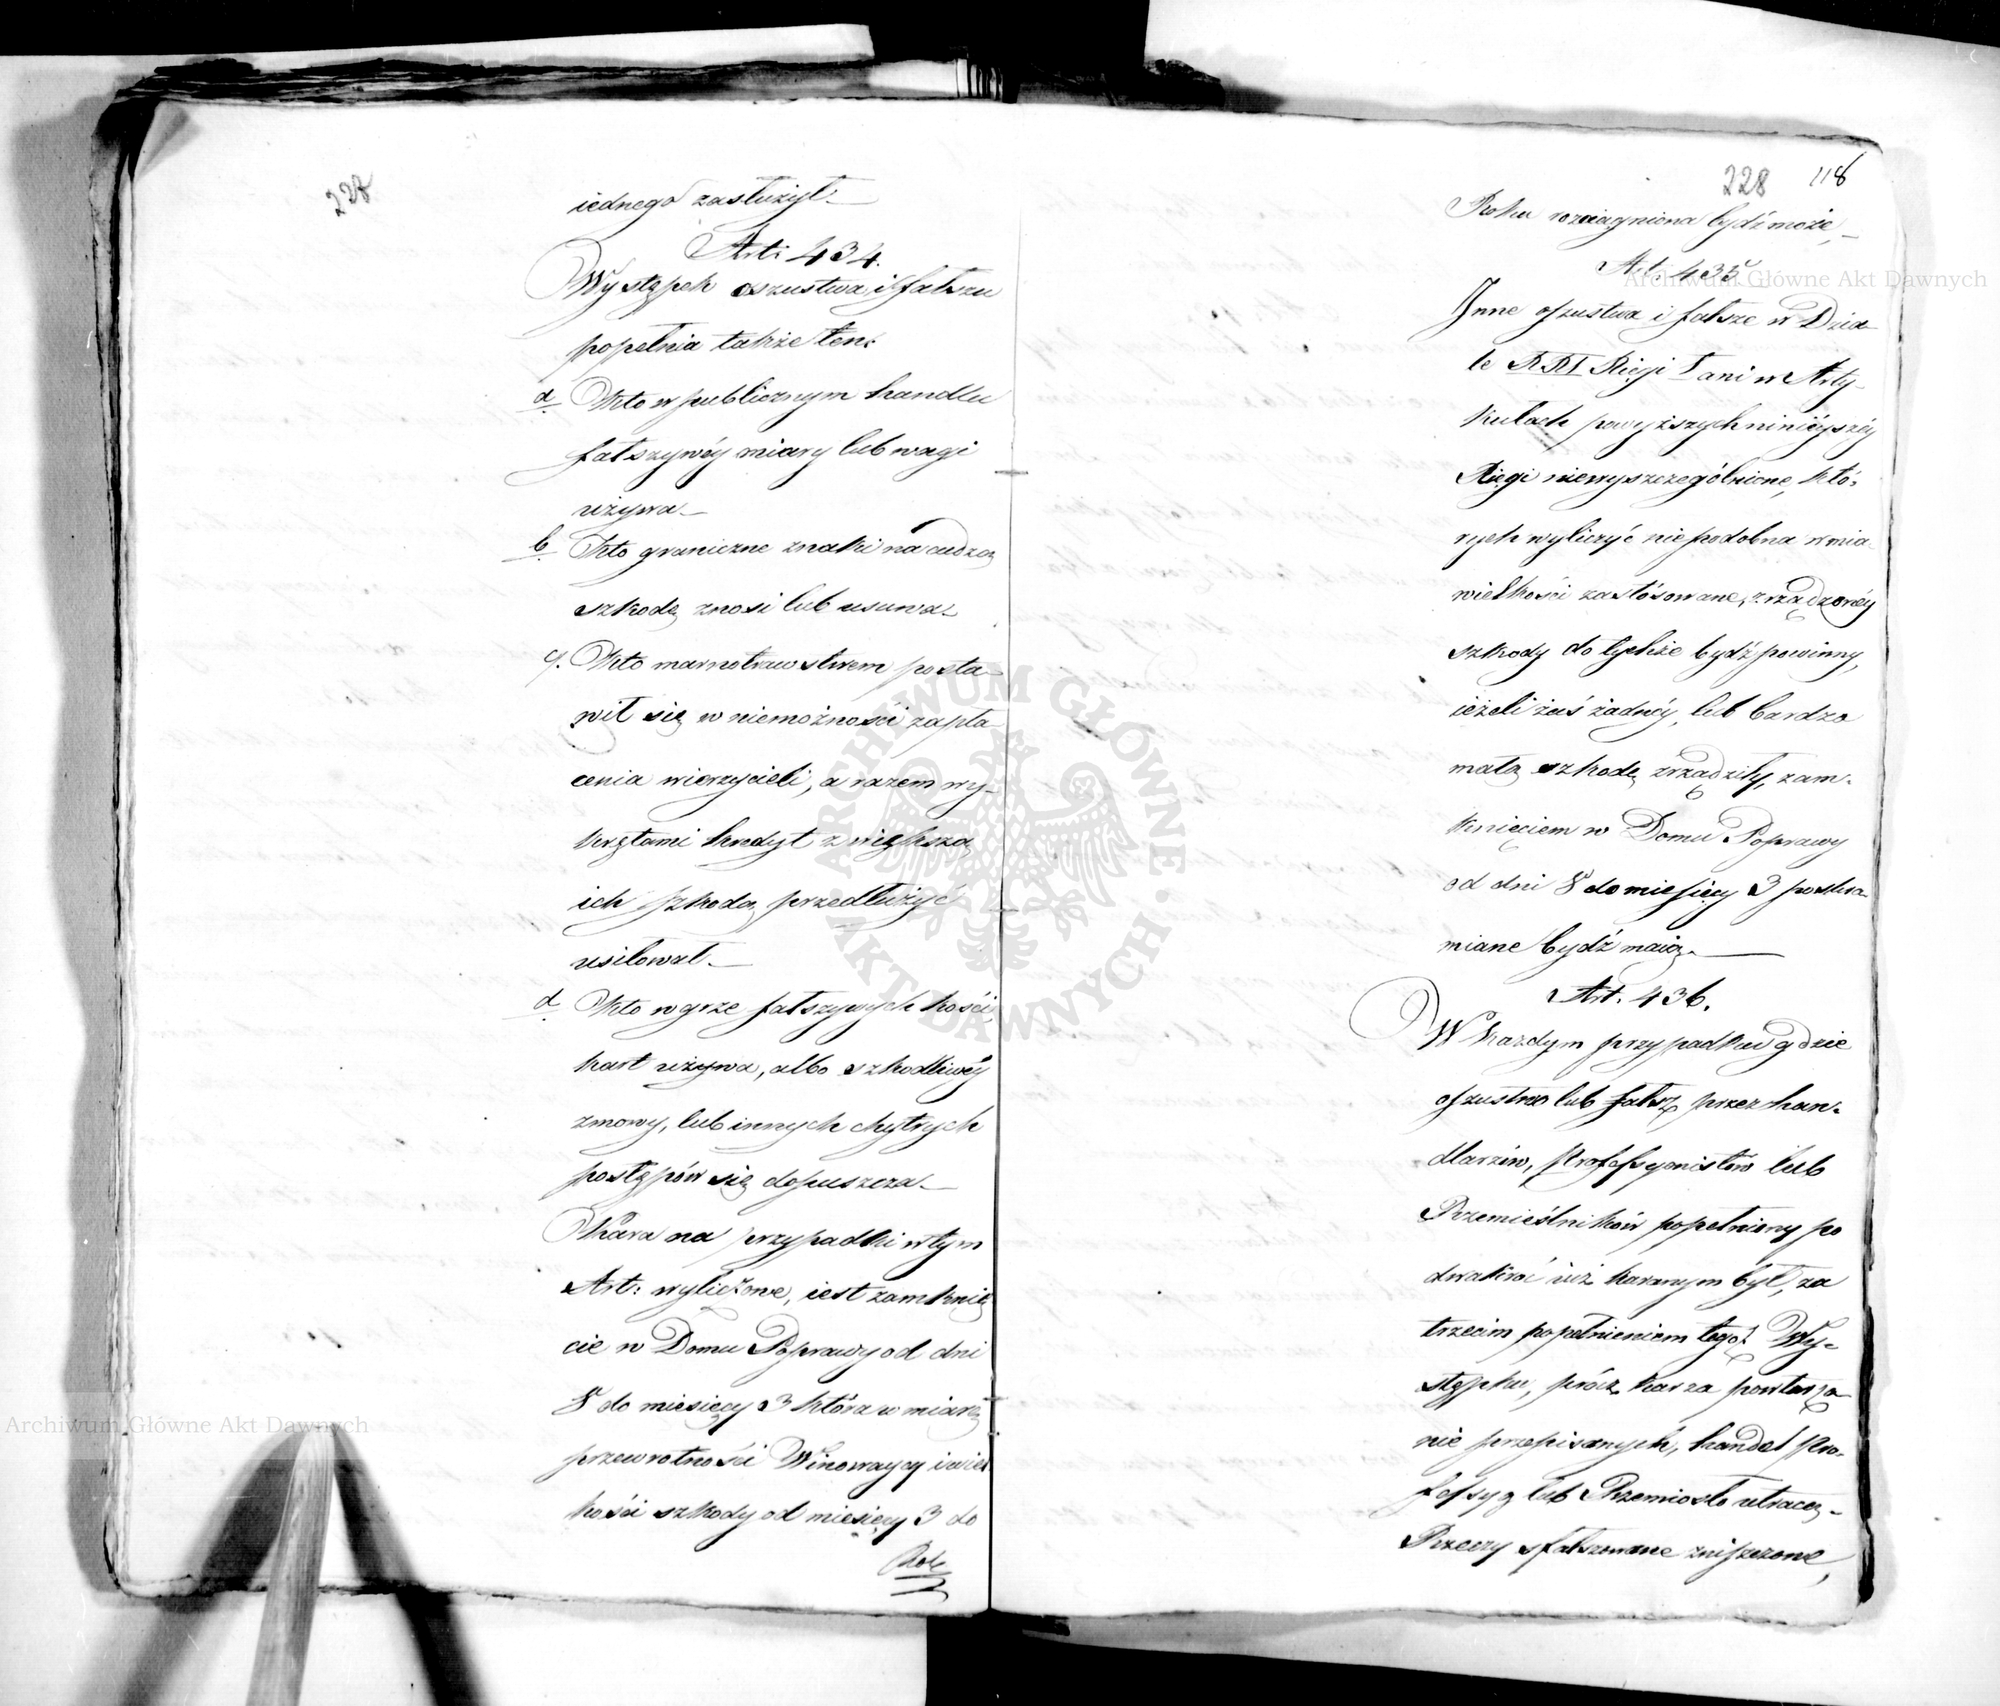 228
iednego zasłużył.
Art: 434.
Występek oszustwa i fałszu
popełnia także ten:
a. Kto w publicznym handlu
fałszywéy miary lub wagi
używa
b. Kto graniczne znaki na cudzą
szkodę znosi lub usuwa
c. Kto marnotrawstwem posta-
wił się w niemożności zapła
cenia wierzycieli, a razem wy-
krętami kredyt z większą
ich szkodą przedłużyć
usiłował
d. Kto w grze fałszywych kości,
kart używa, albo szkodliwéy
zmowy, lub innych chytrych
postępów się dopuszcza
Kara na przypadki w tym
Art: wyliczone, iest zamknię
cie w Domu Poprawy od dni
8 do miesięcy 3 która w miarę
przewrotności Winowaycy i wiel
kości szkody od miesięcy 3 do
Rok
228 118
Roku rozciągniona bydź może,
Art: 435
Inne oszustwa i fałsze w Dzia-
le XXI Księgi I ani w Arty-
kułach powyższych ninieyszéy
Księgi niewyszczególnione, któ-
rych wyliczyć niepodobna w mia-
wielkości zastósowane, zrządzonéy
szkody do tychże bydź powinny,
ieżeli zaś żadnéy, lub bardzo
małą szkodę zrządziły, zam-
knięciem w Domu Poprawy
od dni 8 do miesięcy 3 poskra-
miane bydź maią.
Art. 436.
W każdym przypadku gdzie
oszustwo lub fałsz przez han-
dlarzów, Professyonistów lub
Rzemieślników popełniony po
dwakroć już karanym był, za
trzecim popełnieniem tegoż Wy-
stępku, prócz kar za powtarza-
nie przepisanych, handel Pro-
fessyą lub Rzemiosło utracą
Rzeczy sfałszowane zniszczone,
Archiwum Główne Akt Dawnych
Archiwum Główne Akt Dawnych
ARCHIWUM GŁÓWNE AKT DAWNYCH